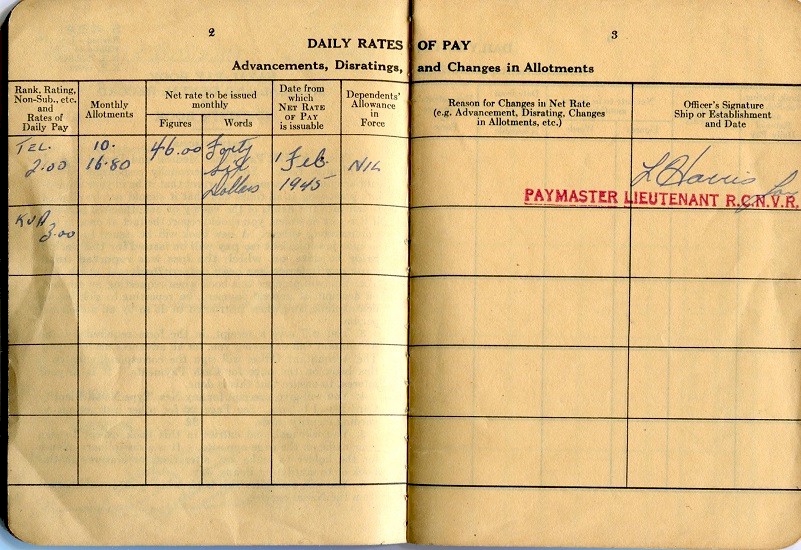 2
DAILY RATES
Advancements, Disratings,
Rank, Rating,
Non-Sub., etc.
and
Rates of
Daily Pay
Monthly
Allotments
Net rate to be issued
monthly
Figures
Words
Date from
which
NET RATE
OF PAY
is issuable
Dependents'
Allowance
in
Force
TEL.
2.00
10.
16.80
46.00
Forty
six
Dollars
1 Feb.
1945
NIL
3.00
3
OF PAY
and Changes in Allotments
Reason for Changes in Net Rate
(e.g. Advancement, Disrating, Changes
in Allotments, etc.)
Officer's Signature
Ship or Establishment
and Date
L Harris
PAYMASTER LIEUTENANT R.C.N.V.R.